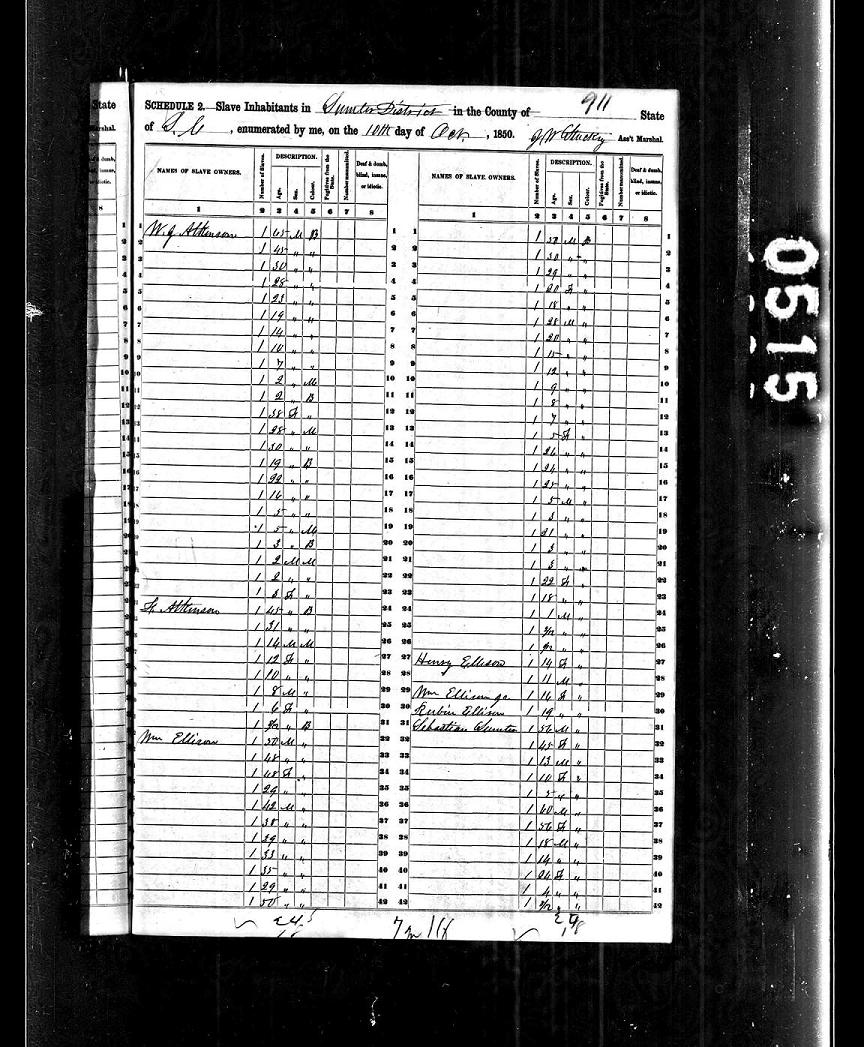 State
911
SCHEDULE 2.—Slave Inhabitants in Sumter District in the County of State
of S. C , enumerated by me, on the 10th day of Oct , 1850. Ass't Marshal.
NAMES OF SLAVE OWNERS.
Number of Slaves.
DESCRIPTION.
Age.
Sex.
Colour.
Fugitives from the State.
Number manumitted.
Deaf & dumb, blind, insane, or idiotic.
1 2 3 4 5 6 7 8
NAMES OF SLAVE OWNERS.
Number of Slaves.
DESCRIPTION.
Age.
Sex.
Colour.
Fugitives from the State.
Number manumitted.
Deaf & dumb, blind, insane, or idiotic.
1 2 3 4 5 6 7 8
1 W. J. Atkinson 1 65 M B 1
2 1 45 " " 2
3 1 30 " " 3
4 1 28 " " 4
5 1 23 " " 5
6 1 19 " " 6
7 1 14 " " 7
8 1 10 " " 8
9 1 7 " " 9
10 1 2 " M 10
11 1 2 " B 11
12 1 38 F " 12
13 1 28 " M 13
14 1 30 " " 14
15 1 19 " B 15
16 1 22 " " 16
17 1 16 " " 17
18 1 5 " " 18
19 1 5 " M 19
20 1 3 " B 20
21 1 2 M M 21
22 1 2 " " 22
23 1 3 F " 23
24 Atkinson 1 45 " B 24
25 1 31 " " 25
26 1 14 M M 26
27 1 12 F " 27
28 1 10 " " 28
29 1 8 M " 29
30 1 6 F " 30
31 1 " B 31
32 Wm Ellison 1 50 M " 32
33 1 48 " " 33
34 1 48 F " 34
35 1 29 " " 35
36 1 42 M " 36
37 1 38 " " 37
38 1 39 " " 38
39 1 33 " " 39
40 1 35 " " 40
41 1 29 " " 41
42 1 50 " " 42
1 1 M B 1
2 1 30 " " 2
3 1 29 " " 3
4 1 20 F " 4
5 1 18 " " 5
6 1 28 M " 6
7 1 20 " " 7
8 1 15 " " 8
9 1 12 " " 9
10 1 9 " " 10
11 1 8 " " 11
12 1 7 " " 12
13 1 5 F " 13
14 1 26 " " 14
15 1 24 " " 15
16 1 25 " " 16
17 1 5 M " 17
18 1 3 " " 18
19 1 21 " " 19
20 1 3 " " 20
21 1 3 " " 21
22 1 22 F " 22
23 1 18 " " 23
24 1 1 M " 24
25 1 " " 25
26 1 " " 26
27 Henry Ellison 1 14 F " 27
28 1 11 M " 28
29 Wm Ellison jr 1 16 F " 29
30 Rubin Ellison 1 19 " " 30
31 Sebastian Sumter 1 56 M " 31
32 1 45 F " 32
33 1 13 M " 33
34 1 10 F " 34
35 1 5 " " 35
36 1 60 M " 36
37 1 56 F " 37
38 1 18 M " 38
39 1 14 " " 39
40 1 F " 40
41 1 4 " " 41
42 1 " " 42
0515